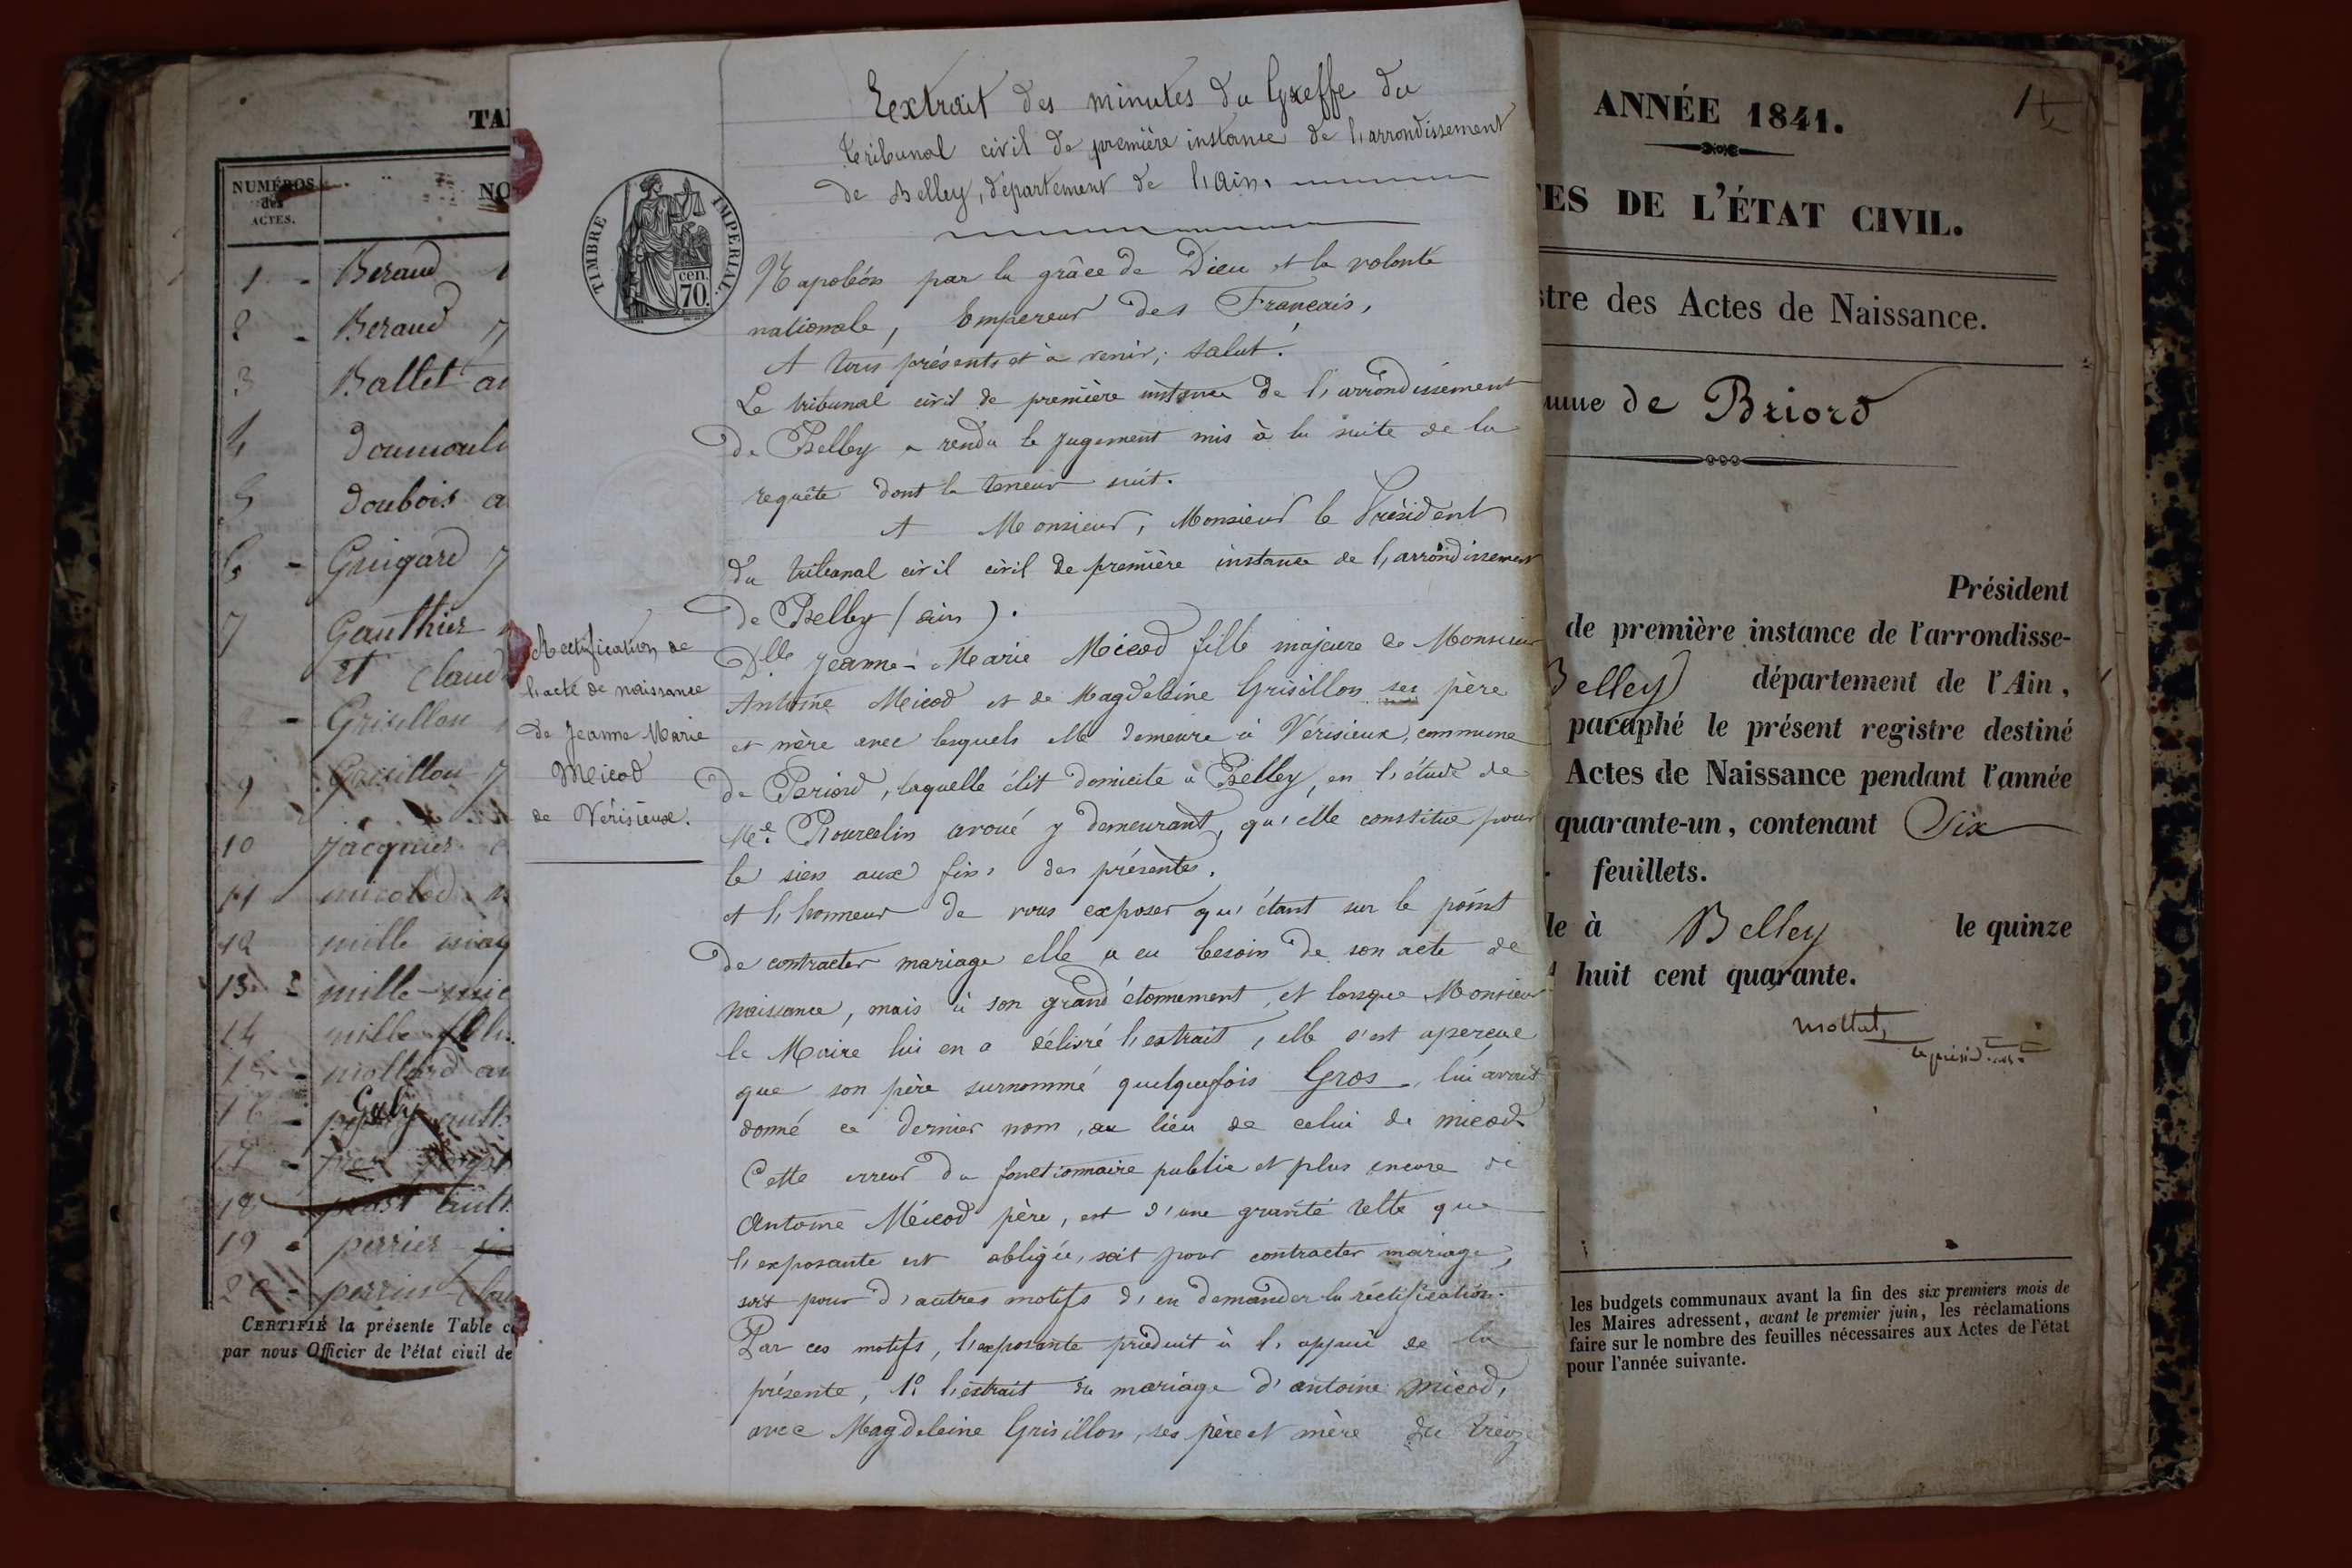 TA
NUMÉROS
des
ACTES.
NO
1 - Beraud
2 - Beraud
3 Ballet
4
5 Doubois
6 - Guigard
7 Gauthier
et Claud
- Grisillon
9 Grisillon
10 jacquier
11
12 mille
13 mille
14 mille
15 - mollard
16 - Guby
17 -
18 prost
19 perrier
20 - perrin
CERTIFIÉ la présente Table
par nous Officier de l'état civil de
TIMBRE IMPERIAL.
cen.
70.
Rectification de
l'acte de naissance
de Jeanne Marie
Micod
de Vérisieux.
Eextrait des minutes du Greffe du
tribunal civil de première instance de l'arrondissement
de Belley, département de l'ain.
Napoléon par la grâce de Dieu et la volonté
nationale, Empereur des Français,
A tous présents et à venir, salut.
Le tribunal civil de première instance de l'arrondissement
de Belley a rendu le jugement mis à la suite de la
requête dont la teneur suit.
A Monsieur, Monsieur le Président
du tribunal civil civil de première instance de l'arrondissement
de Belley (ain).
D.lle Jeanne-Marie Micod fille majeure de Monsieur
Antoine Micod et de Magdeleine Grisillon ses père
et mère avec lesquels elle demeure à Vérisieux, commune
de Briord, laquelle élit domicile à Belley, en l'étude de
Me. Rourcelin avoué y demeurant, qu'elle constitue pour
le sien aux fins des présentes.
et l'honneur de vous exposer qu'étant sur le point
de contracter mariage elle a eu besoin de son acte de
naissance, mais à son grand étonnement, et lorsque Monsieur
le Maire lui en a délivré l'extrait, elle s'est aperçue
que son père surnommé quelquefois Gros, lui avait
donné ce dernier nom, au lieu de celui de micod
Cette erreur du fonctionnaire public et plus encore de
Antoine Micod père, est d'une gravité telle que
l'exposante est obligée, soit pour contracter mariage,
soit pour d'autres motifs d'en demander la réctification.
Par ces motifs, l'exposante produit à l'appui de la
présente, 1º l'extrait du mariage d'antoine micod,
avec Magdeleine Grisillon, ses père et mère du treize
ANNÉE 1841.
TES DE L'ÉTAT CIVIL.
stre des Actes de Naissance.
mune de Briord
Président
de première instance de l'arrondisse-
Belley département de l'Ain,
paraphé le présent registre destiné
Actes de Naissance pendant l'année
quarante-un, contenant Six
feuillets.
le à Belley le quinze
huit cent quarante.
Mottat,
les budgets communaux avant la fin des six premiers mois de
les Maires adressent, avant le premier juin, les réclamations
faire sur le nombre des feuilles nécessaires aux Actes de l'état
pour l'année suivante.